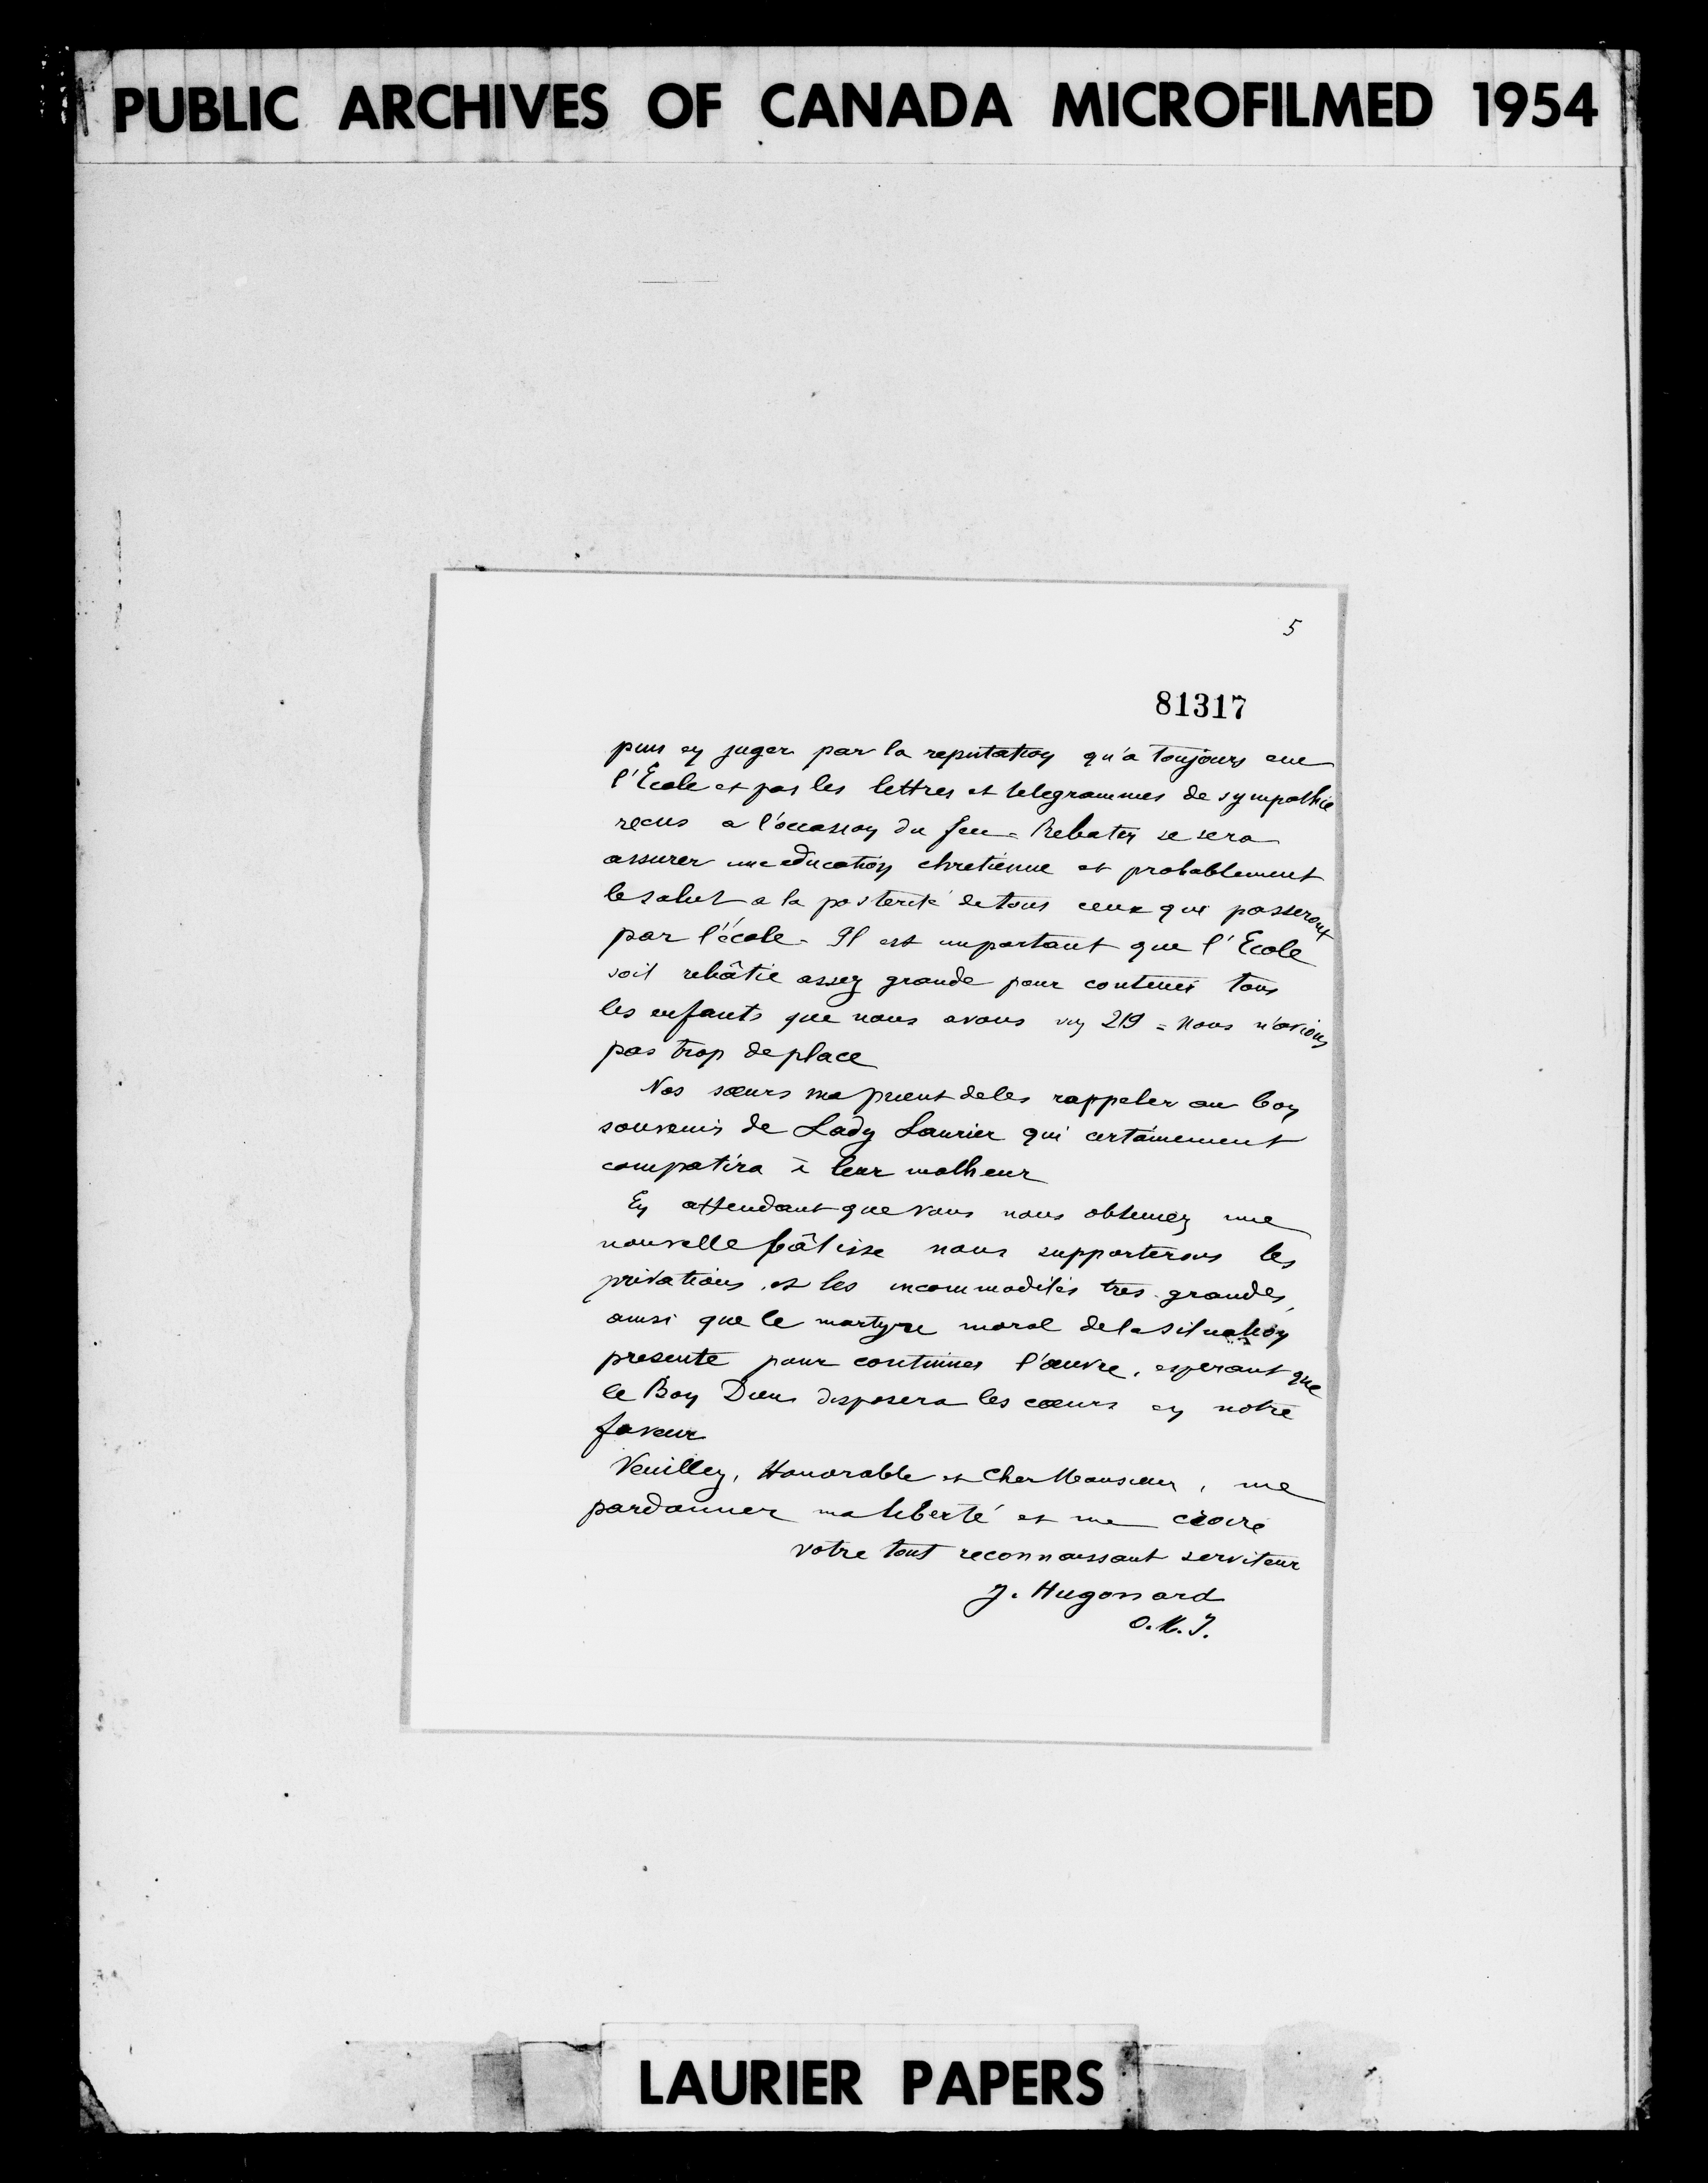 PUBLIC ARCHIVES OF CANADA MICROFILMED 1954
5
81317
puis en juger par la reputation qu'a toujours eue
l'Ecole et par les lettres et telegrammes de sympathie
recus a l'occasion du feu - Rebatir se sera
assurer une education chretienne et probablement
le salut a la posterité de tous ceux qui passeront
par l'école - Il est important que l'Ecole
soit rebâtie assez grande pour contenir tous
les enfants que nous avons 219 = nous n'avions
pas trop de place
Nos sœurs me prient de les rappeler au bon
souvenir de Lady Laurier qui certainement
compatira à leur malheur
En attendant que vous nous obteniez une
nouvelle bâtisse nous supporterons les
privations et les incommodités tres grandes,
ainsi que le martyre moral de la situation
presente pour continuer l'œuvre, esperant que
le Bon Dieu disposera les cœurs en notre
faveur
Veuillez, Honorable et Cher Monsieur, me
pardonner ma liberté et me croire
votre tout reconnaissant serviteur
J. Hugonnard
O.M.I.
LAURIER PAPERS